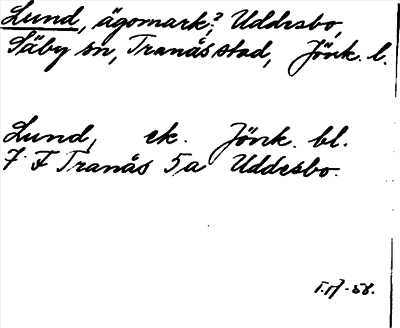 Lund, ägomark?, Uddesbo,
Säby sn, Tranås stad, Jönk. l.
Lund, ek. Jönk. bl.
7 F Tranås 5a Uddesbo.
-58.